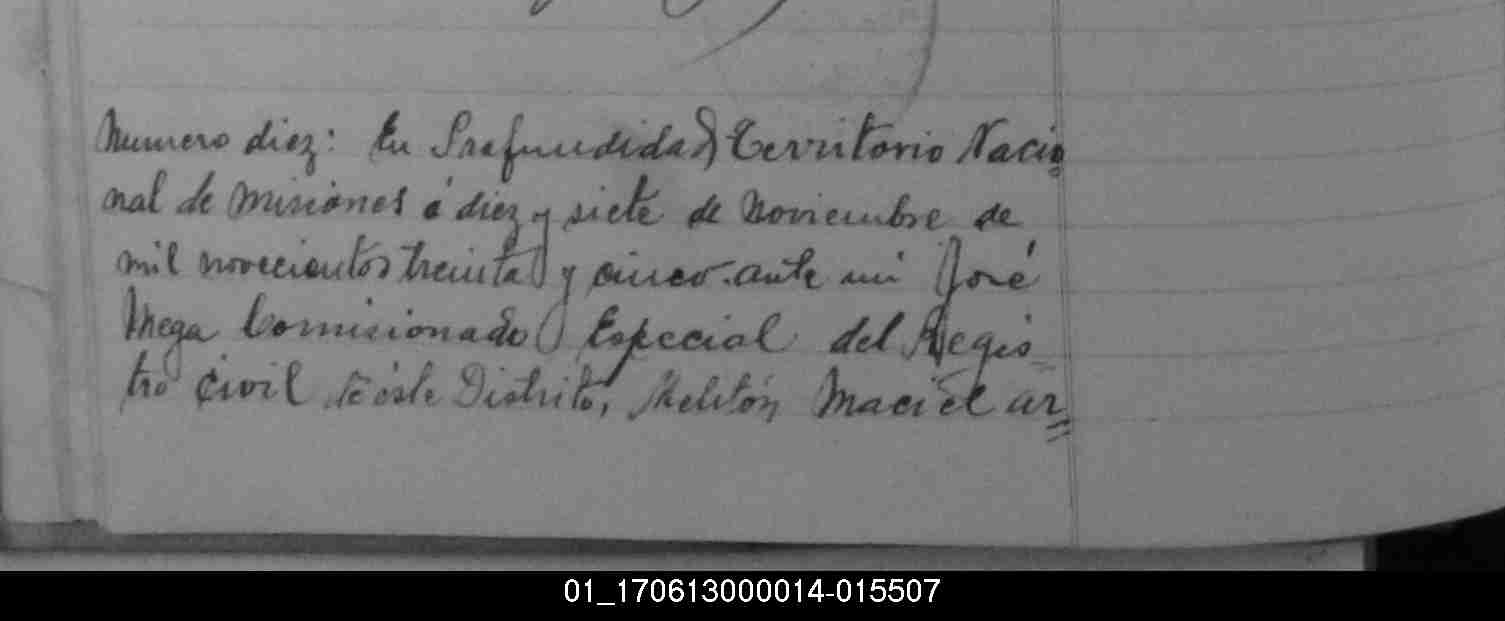 Numero diez: En Profundidad Territorio Nacio
nal de Misiones á diez y siete de Noviembre de
mil novecientos treinta y cinco. ante mi José
Mega Comisionado Especial del Regis
tro Civil de éste Distrito, Melitón Maciel ar
01_170613000014-015507